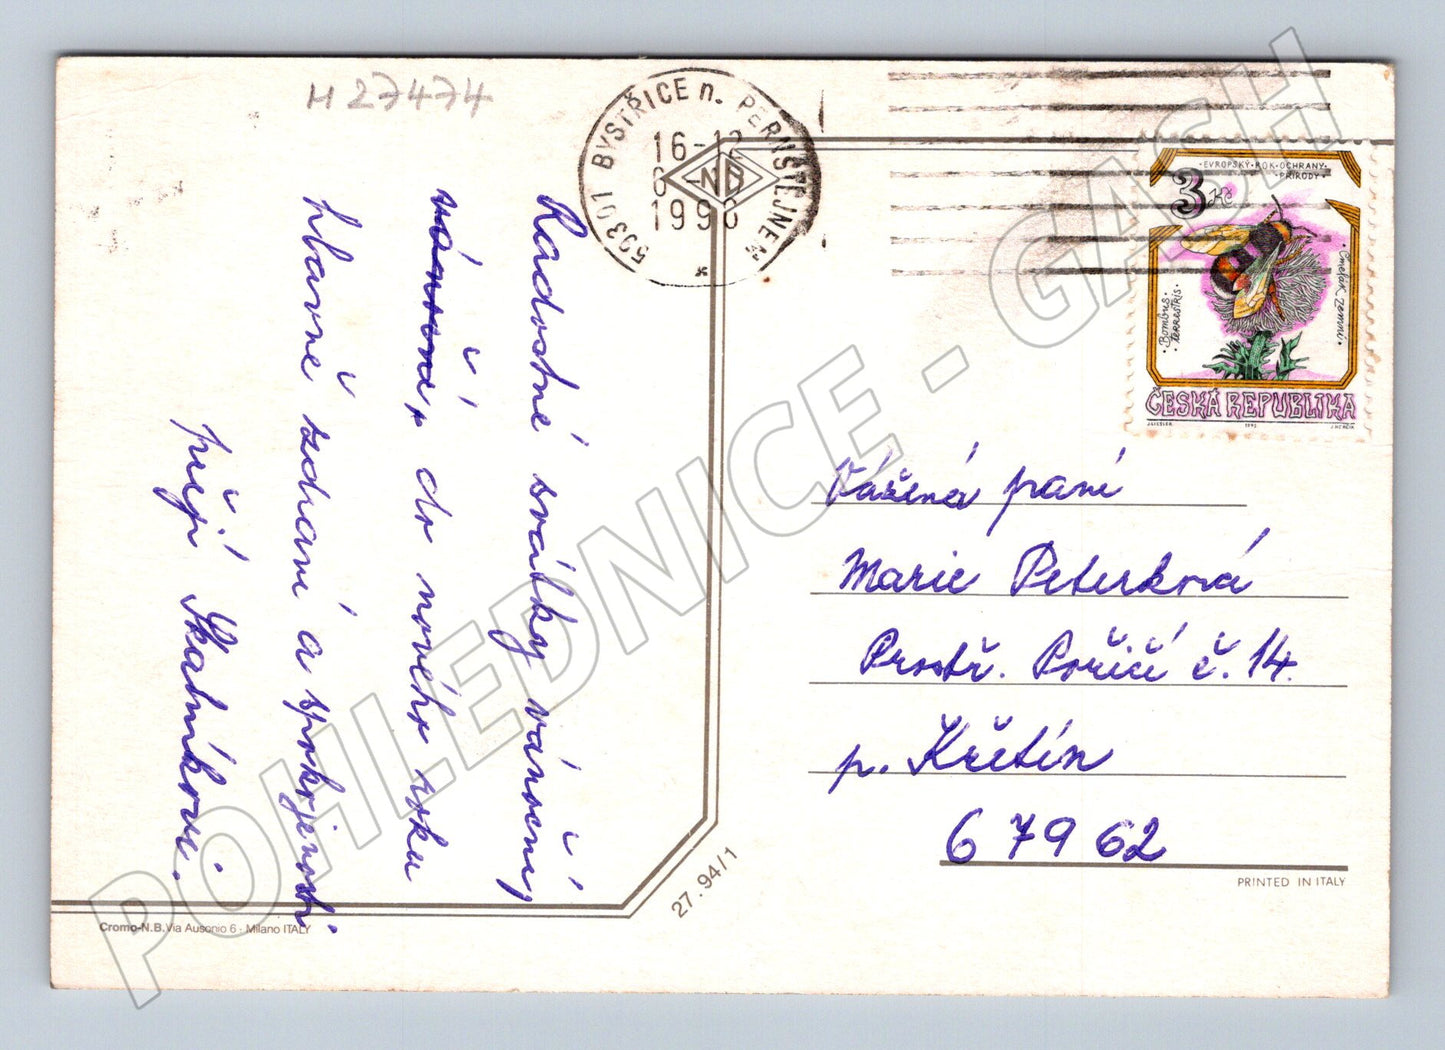 H 27474
593 01 BYSTŘICE n. PERNŠTEJNEM
16-12
1996
NB
EVROPSKÝ·ROK·OCHRANY
PŘÍRODY·
3 Kč
·Bombus·
terrestris·
Čmelák zemní·
ČESKÁ REPUBLIKA
J.LIESLER 1995
Radostné svátky vánoční,
do nového roku
hlavně zdraví a spokojenosti
přejí Skalníkovi.
Vážená paní
Marie Peterková
Prostř. Poříčí č. 14.
p. Křetín
67962
PRINTED IN ITALY
27.94/1
Cromo-N.B. Via Ausonio 6 - Milano ITALY
POHLEDNICE - GASH